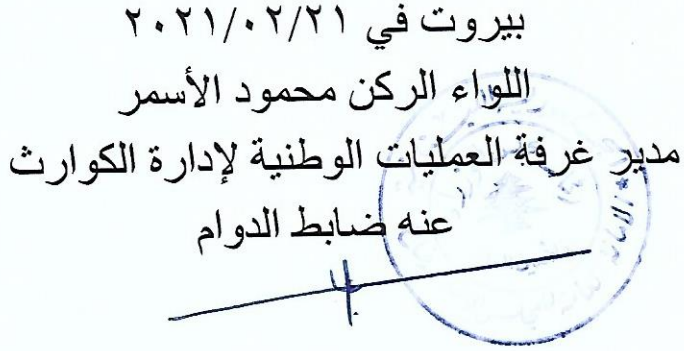 بيروت في ٢٠٢١/٠٢/٢١
اللواء الركن محمود الأسمر
مدير غرفة العمليات الوطنية لإدارة الكوارث
عنه ضابط الدوام